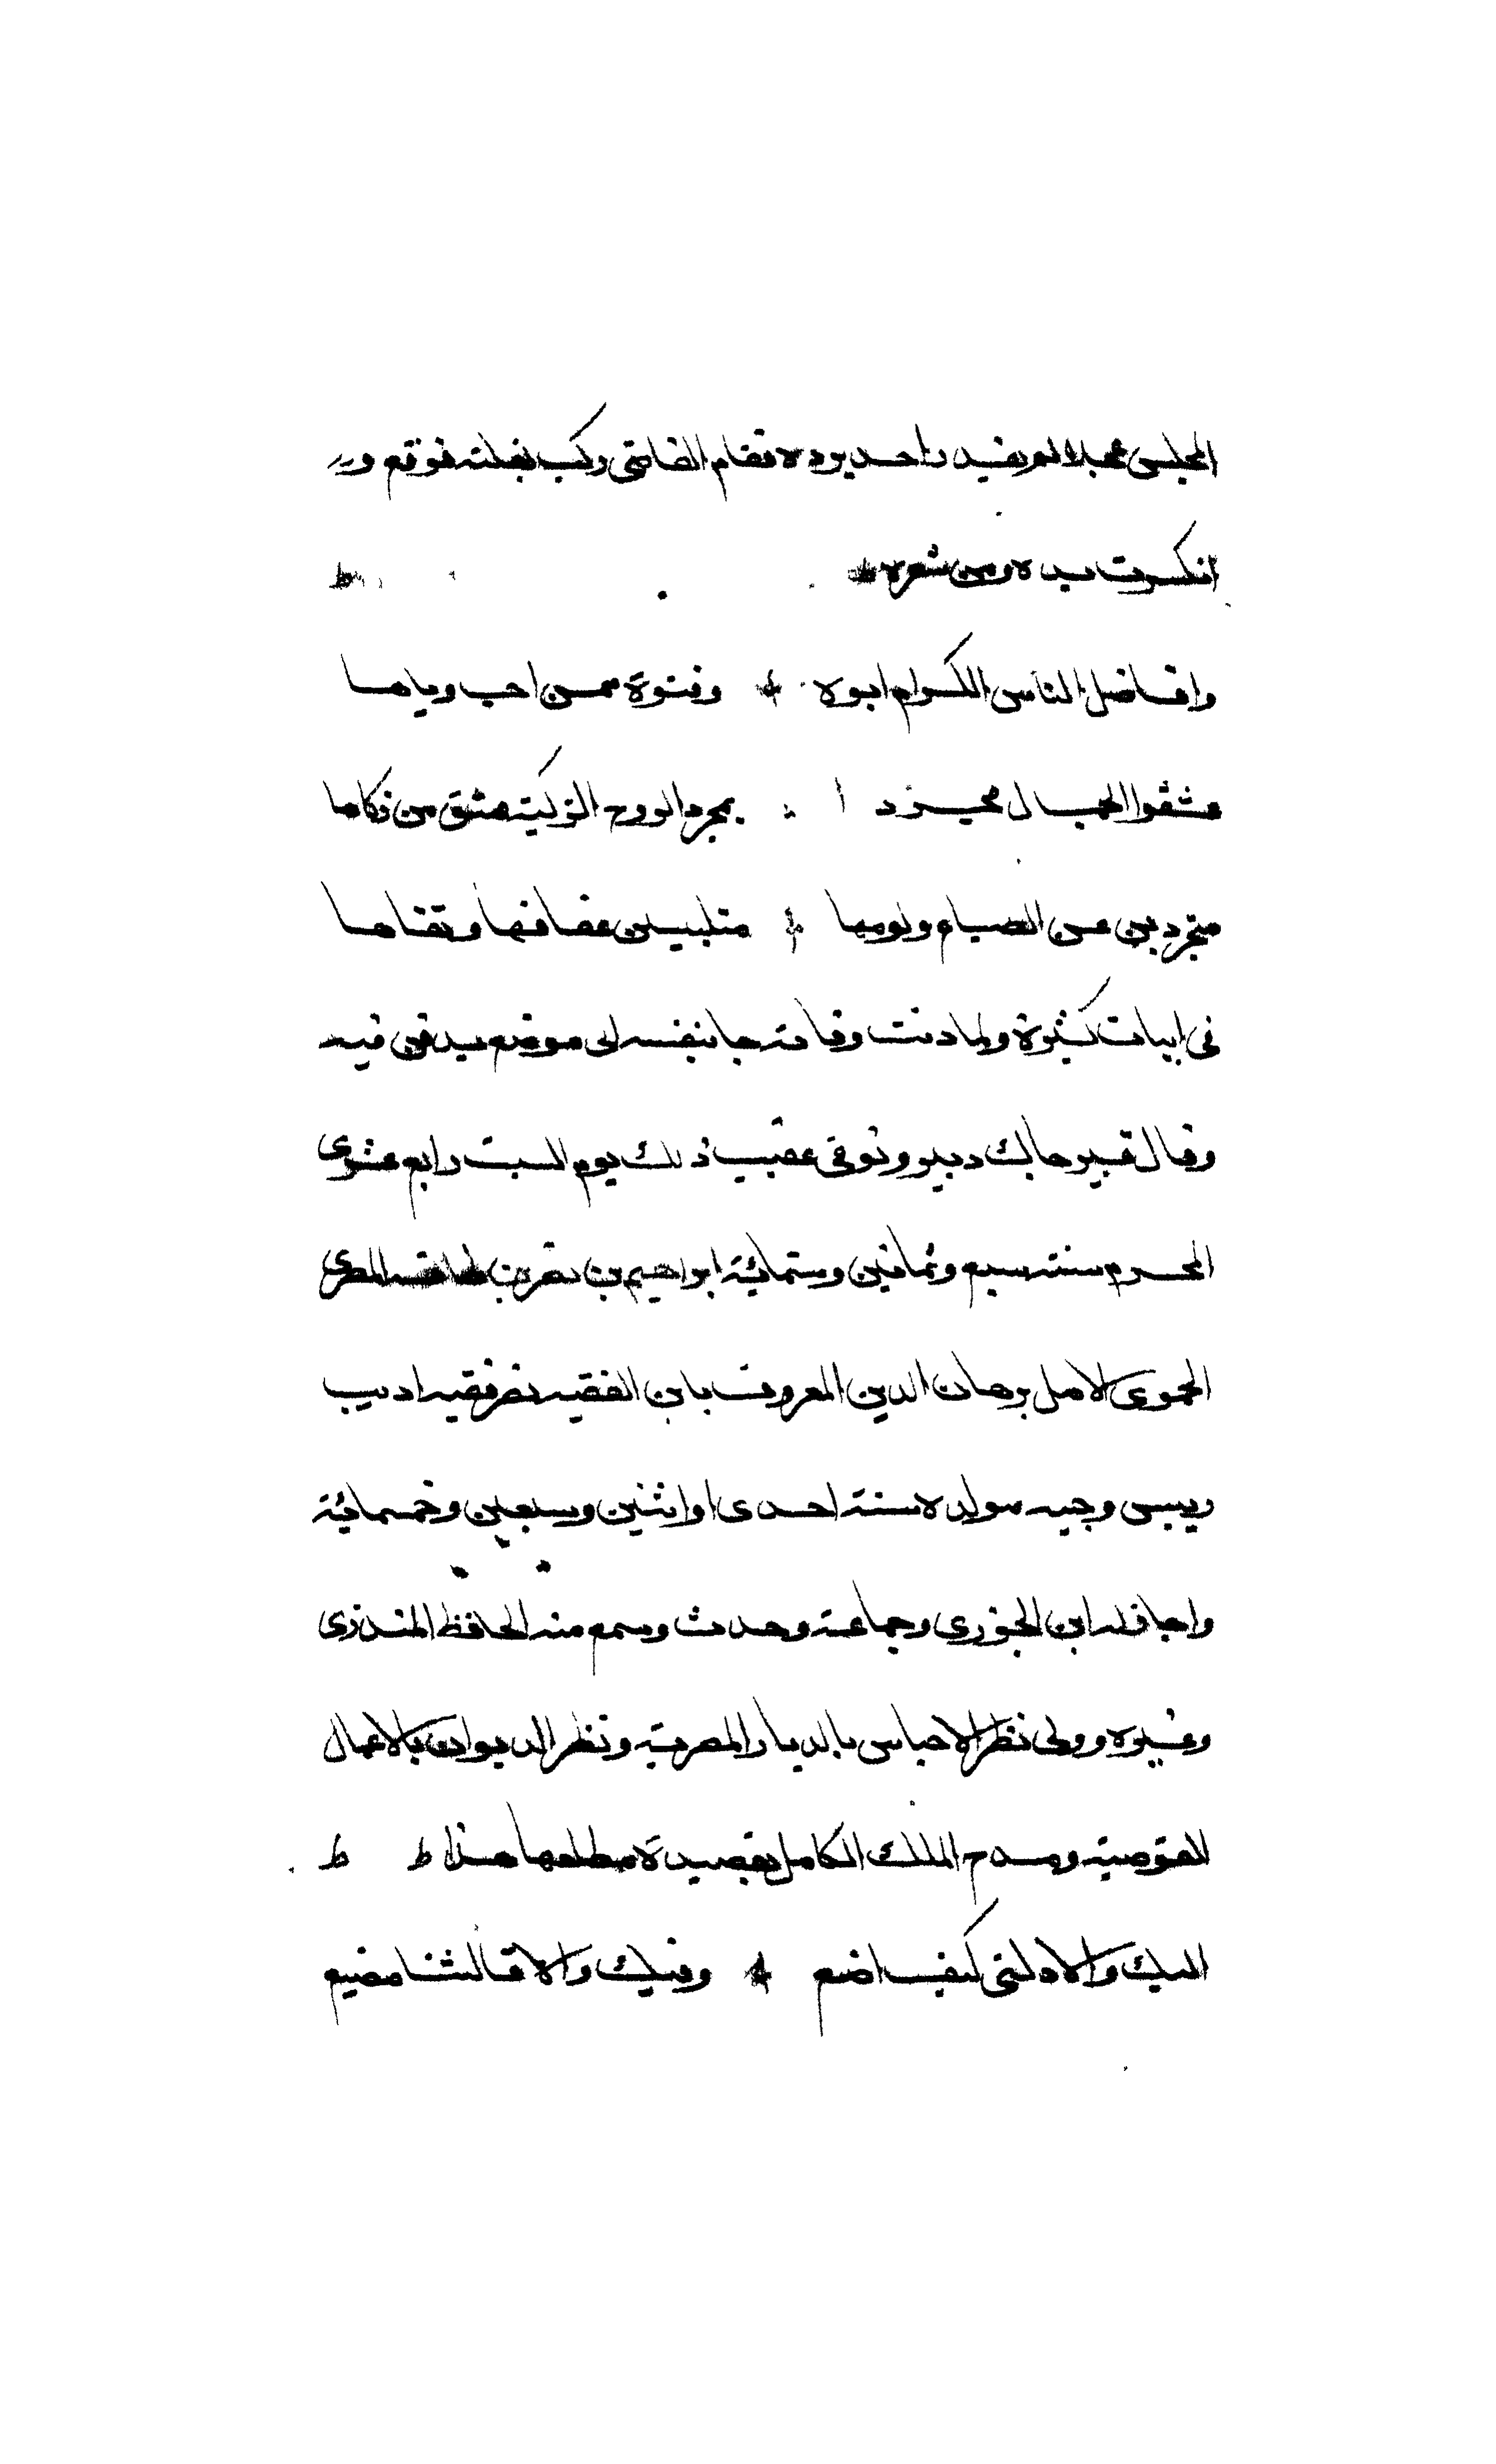 المجلس عجلا فلم يفيد راحد يرده فقام القاضى وركب بغلته فوقع ور
انكسرت يده ومن شعره
وافاضل الناس الكرام ابوه وفتوة ممن احب وباها
عشقوا الجمال مجرد بمجرد الروح الزكية عشق من زكاها
متجردين عن الصبام ولومها متلبسين عفافها وتقاها
فى ابيات كثيرة ولما دنت وفاته جا بنفسه الى موضع يدفن فيه
وقال قبير جالك دبير وتوفى عقيب ذلك يوم السبت رابع عشرى
المحرم سنة سبع وثمانين وستمائة ابراهيم بن نصر بن طاقه المصرى
الحموى الاصل برهان الدين المعروف بابن الفقيه نصر فقيه اديب
رييس وجيه مولده سنة احدى او اثنين وسبعين وخمسمائة
واجاز له ابن الجوزى وجماعة وحدث وسمع منه الحافظ المنذرى
وغيره وولى نظر الاحباس بالديار المصرية ونظر الديوان بالاعمال
القوصية ومدح الملك الكامل بقصيدة مطلعها هذا
اليك والا دلنى كيف اصنع وفيك والا فالثنا مضيع